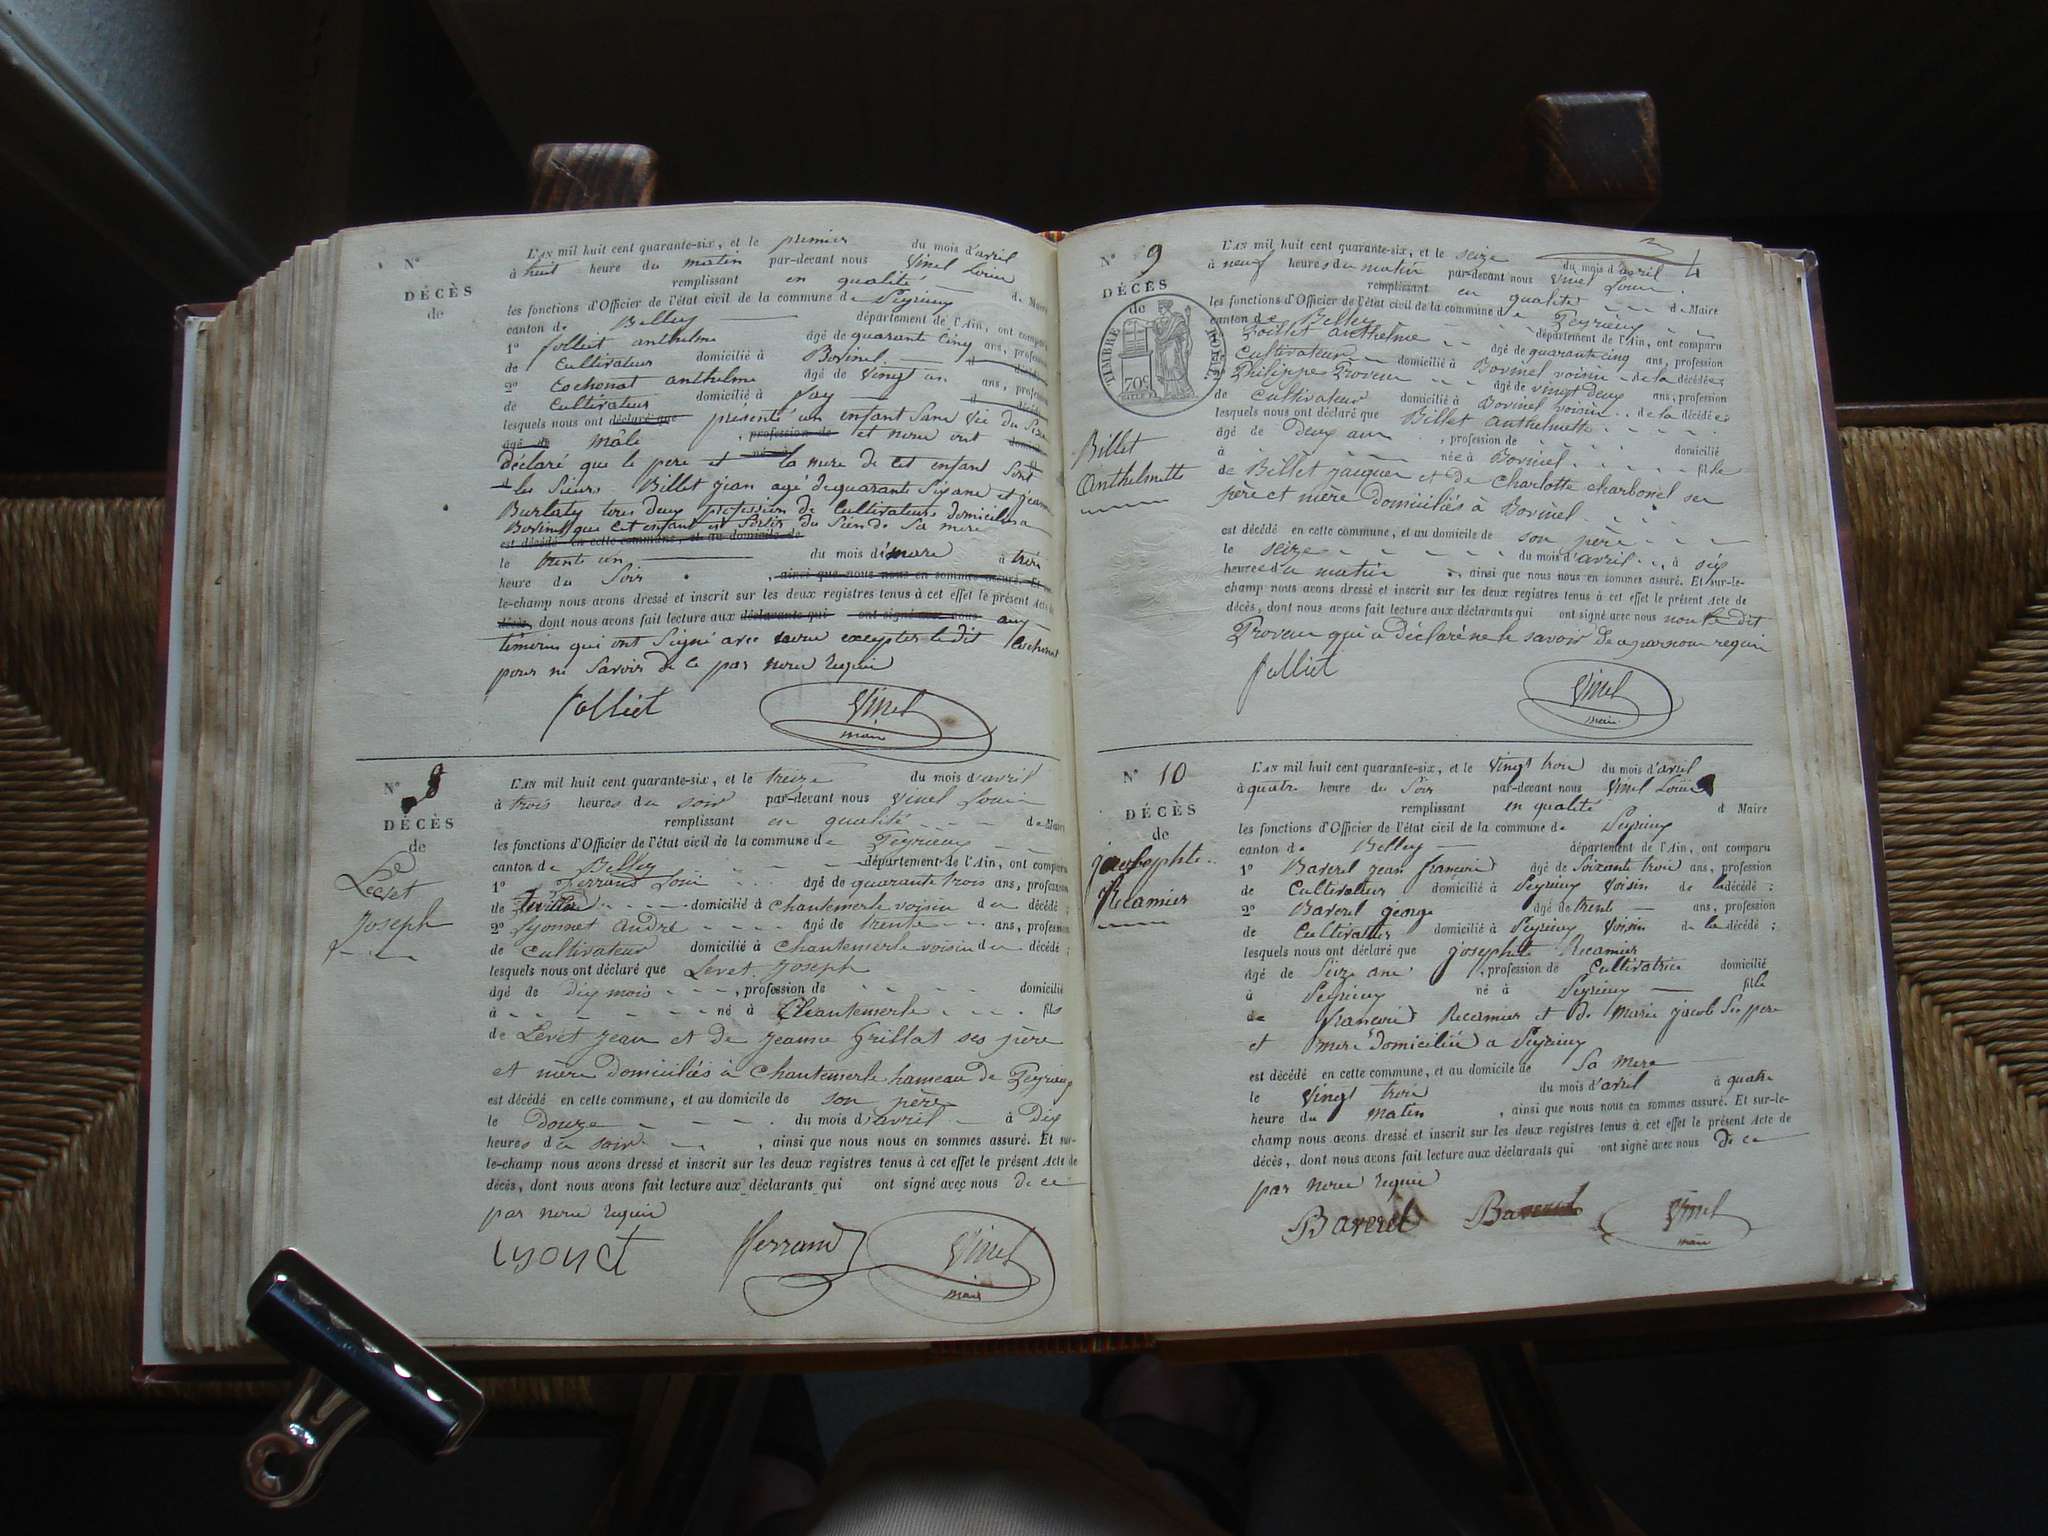 N°
DÉCÈS
de
L'AN mil huit cent quarante-six, et le premier du mois d'avril
à huit heure du matin par-devant nous Vinel Louis
remplissant en qualité de Maire
les fonctions d'Officier de l'état civil de la commune de Peyrieux
canton de Belley département de l'Ain, ont comparu
1° folliet anthelme âgé de quarante cinq ans, profession
de Cultivateur domicilié à Bovinel
2° Cochonat anthelme âgé de vingt un ans, profession
de Cultivateur domicilié à Fay
lesquels nous ont déclaré que présenté un enfant sans vie du Sexe
âgé de mâle , profession de et nous ont
déclaré que le pere et la mere de cet enfant sont
les Sieurs Billet jean agé de quarante six ans et jeanne
Burlaty tous deux profession de Cultivateurs domiciliés a
Bovinel que cet enfant est Sortis du Sein de Sa mere
est décédé en cette commune, et au domicile de
le trente un du mois de mars à trois
heure du Soir , ainsi que nous nous en sommes assuré. Et
le-champ nous avons dressé et inscrit sur les deux registres tenus à cet effet le présent Acte de
décès, dont nous avons fait lecture aux déclarants qui ont signé avec nous aux
témoins qui ont Signé avec nous excepter le dit Cochonat
pour ne Savoir de ce par nous requis
folliet Vinel
maire
N° 8
DÉCÈS
de
Levet
Joseph
L'AN mil huit cent quarante-six, et le treize du mois d'avril
à trois heures du soir par-devant nous Vinel Louis
remplissant en qualité de Maire
les fonctions d'Officier de l'état civil de la commune de Peyrieux
canton de Belley département de l'Ain, ont comparu
1° Ferrand Loui âgé de quarante trois ans, profession
de domicilié à Chantemerle voisin du décédé ;
2° Lyonnet André âgé de trente ans, profession
de Cultivateur domicilié à Chantemerle voisin du décédé ;
lesquels nous ont déclaré que Levet Joseph
âgé de Dix mois , profession de domicilié
à né à Chantemerle fils
de Levet Jean et de Jeanne Grillat ses père
et mère domiciliés à Chantemerle hameau de Peyrieux
est décédé en cette commune, et au domicile de son père
le douze du mois d'avril à Dix
heures du soir , ainsi que nous nous en sommes assuré. Et sur-
le-champ nous avons dressé et inscrit sur les deux registres tenus à cet effet le présent Acte de
décès, dont nous avons fait lecture aux déclarants qui ont signé avec nous de ce
par nous requis
Lyonet Ferrand Vinel
maire
4
N° 9
DÉCÈS
de
TIMBRE ROYAL
70c
Billet
Anthelmette
L'AN mil huit cent quarante-six, et le seize du mois d'avril
à neuf heures du matin par-devant nous Vinel Louis
remplissant en qualité de Maire
les fonctions d'Officier de l'état civil de la commune de Peyrieux
canton de Belley département de l'Ain, ont comparu
Foillet anthelme âgé de quarante cinq ans, profession
Cultivateur domicilié à Bovinel voisin de la décédée ;
Philippe Proveur âgé de vingt deux ans, profession
de Cultivateur domicilié à Bovinel voisin de la décédée ;
lesquels nous ont déclaré que Billet Anthelmette
âgé de Deux ans , profession de domicilié
à née à Bovinel fille
de Billet Jacques et de Charlotte charbonel ses
père et mère Domiciliés à Bovinel
est décédé en cette commune, et au domicile de son père
le seize du mois d'avril à six
heures du matin , ainsi que nous nous en sommes assuré. Et sur-le-
champ nous avons dressé et inscrit sur les deux registres tenus à cet effet le présent Acte de
décès, dont nous avons fait lecture aux déclarants qui ont signé avec nous non le dit
Proveur qui a déclaré ne le savoir de ce par nous requis
folliet Vinel
maire
N° 10
DÉCÈS
de
josephte
Recamier
L'AN mil huit cent quarante-six, et le Vingt trois du mois d'avril
à quatre heure du Soir par-devant nous Vinel Louis
remplissant en qualité d Maire
les fonctions d'Officier de l'état civil de la commune de Peyrieux
canton de Belley département de l'Ain, ont comparu
1° Baverel jean francois âgé de Soixante trois ans, profession
de Cultivateur domicilié à Peyrieux Voisin de la décédé ;
2° Baverel george âgé de trente ans, profession
de Cultivateur domicilié à Peyrieux Voisin de la décédé ;
lesquels nous ont déclaré que josephte Recamier
âgé de Seize ans , profession de Cultivatrice domicilié
à Peyrieux né à Peyrieux fille
de francois Recamier et de Marie jacob Ses pere
et mere domiciliés a Peyrieux
est décédé en cette commune, et au domicile de Sa mere
le Vingt trois du mois d'avril à quatre
heure du matin , ainsi que nous nous en sommes assuré. Et sur-le-
champ nous avons dressé et inscrit sur les deux registres tenus à cet effet le présent Acte de
décès, dont nous avons fait lecture aux déclarants qui ont signé avec nous de ce
par nous requis
Baverel Baverel Vinel
maire